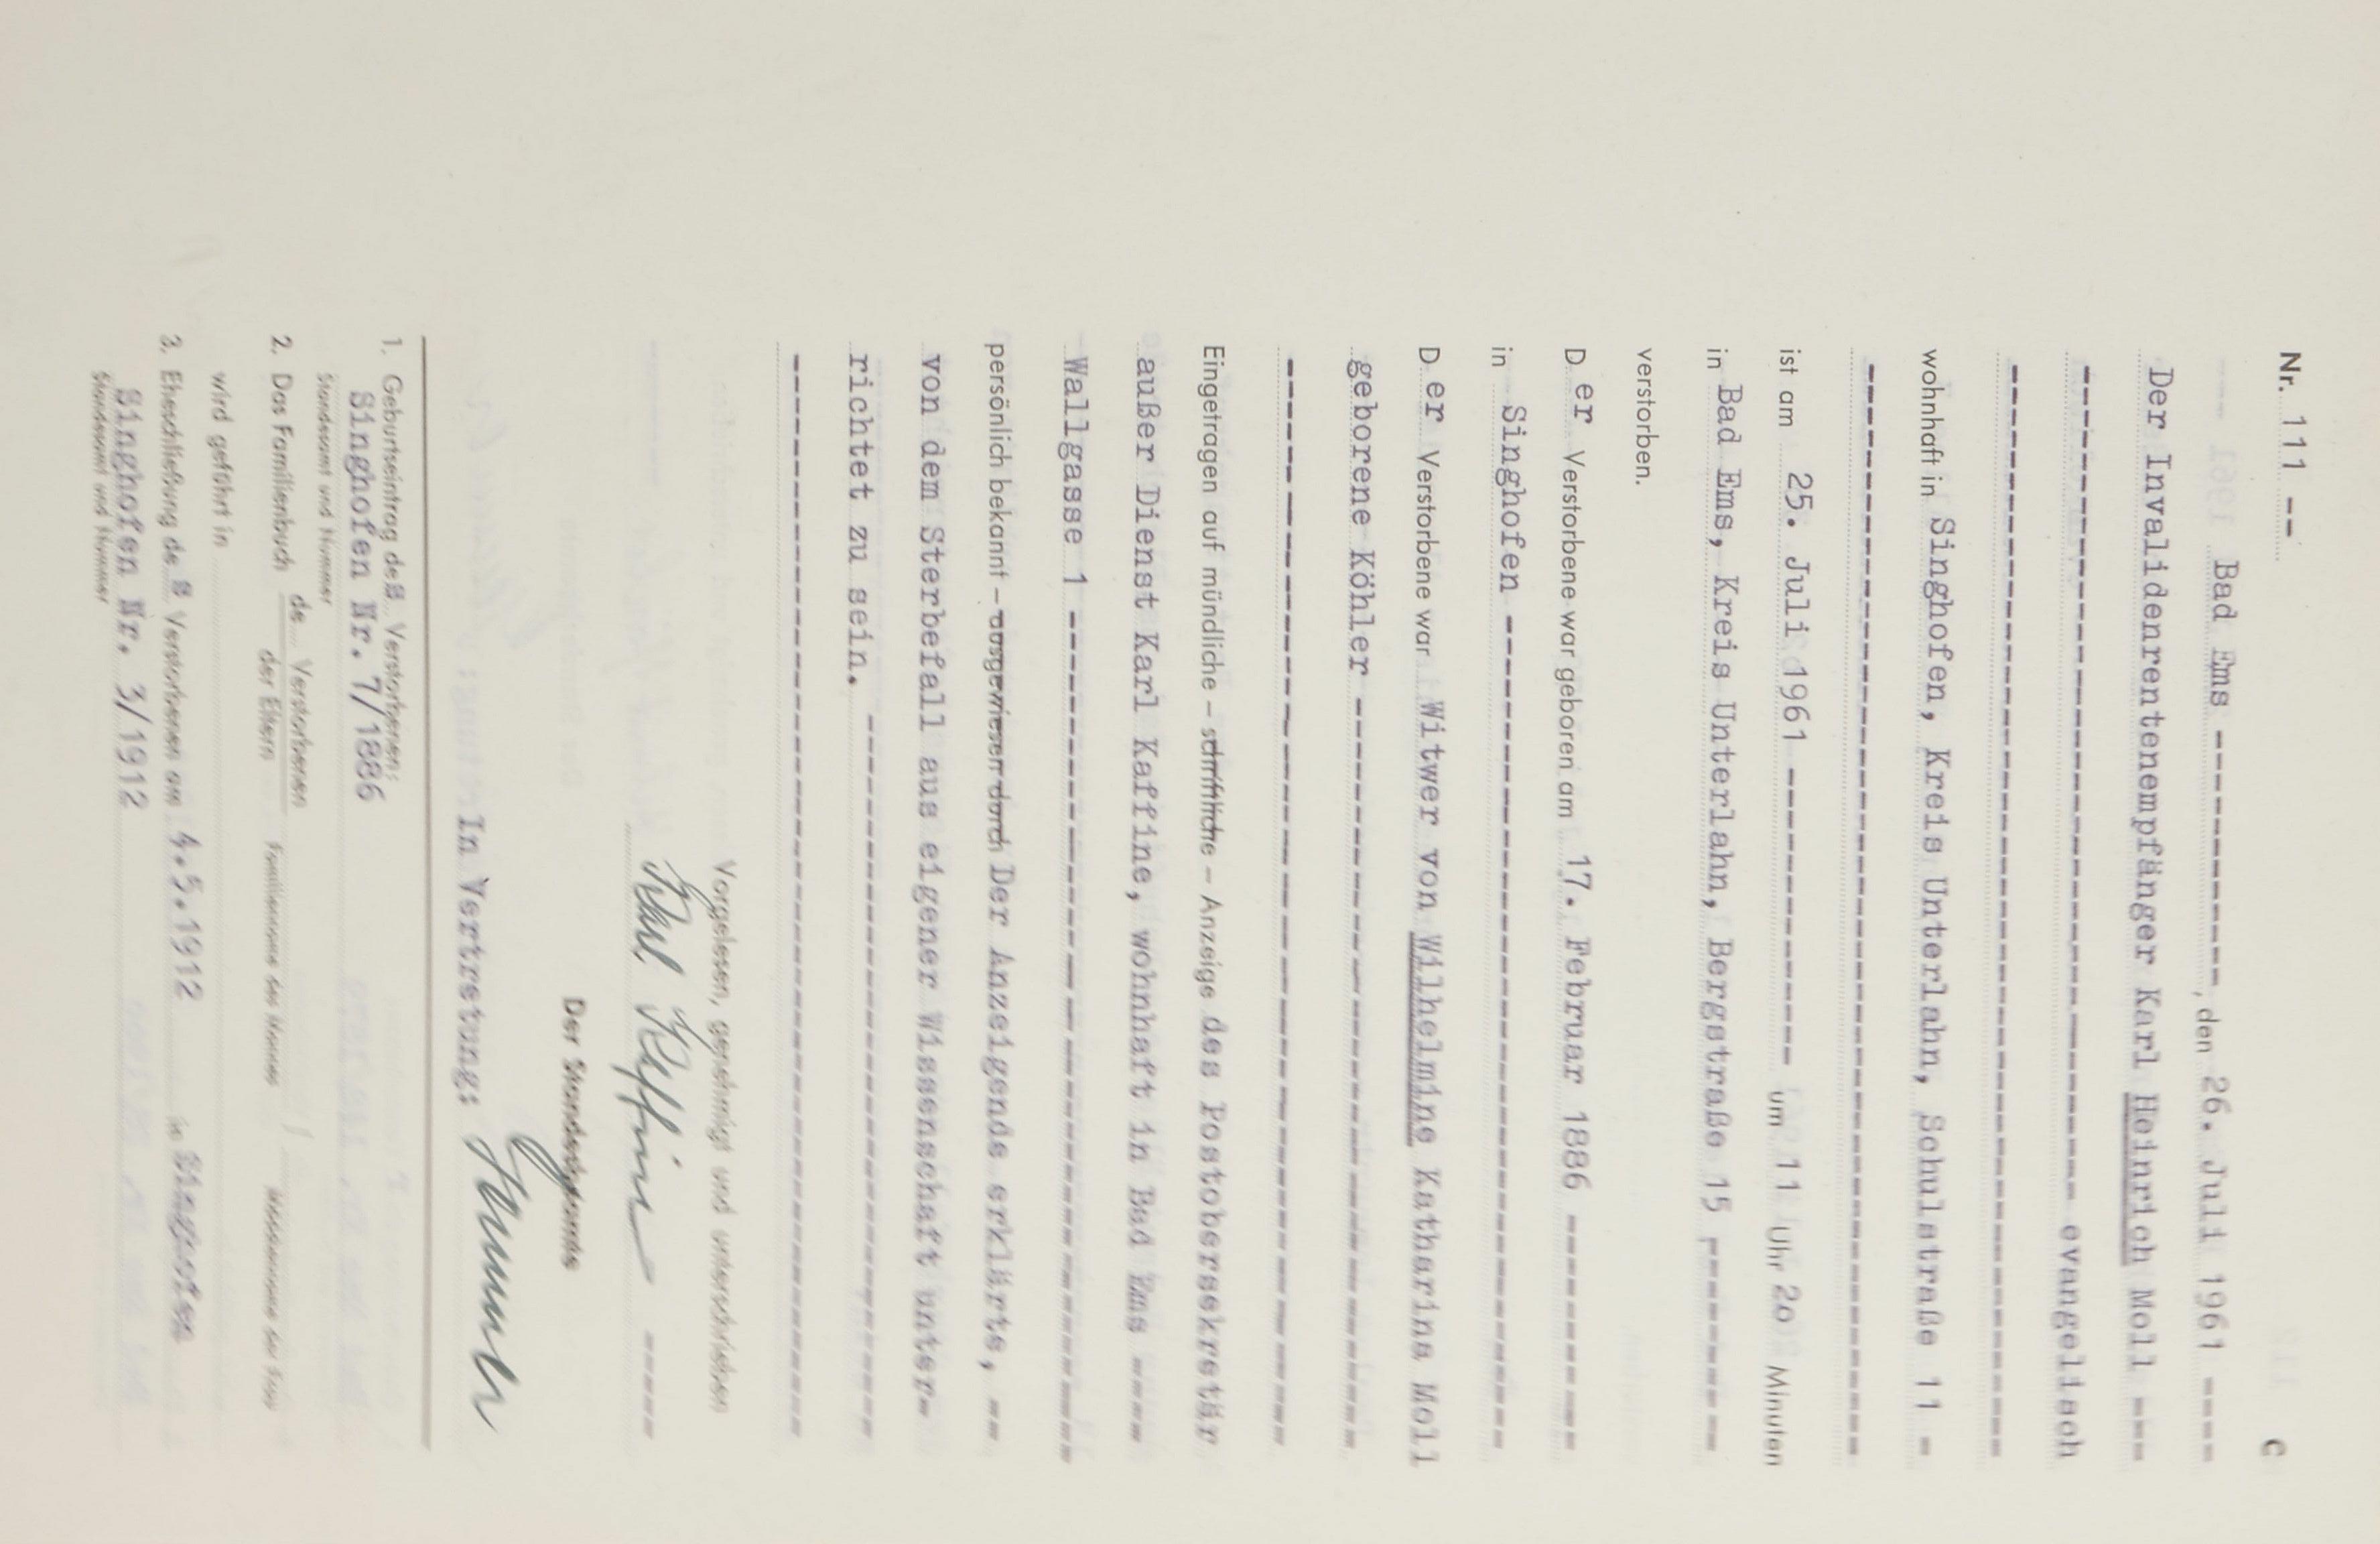 Nr. 111 -- C
Bad Ems ------------, den 26. Juli 1961 ----
Der Invalidenrentenempfänger Karl Heinrich Moll ---
---------------------------------------- evangelisch
----------------------------------------------------
wohnhaft in Singhofen, Kreis Unterlahn, Schulstraße 11 -
----------------------------------------------------
ist am 25. Juli 1961 -------------- um 11 Uhr 20 Minuten
in Bad Ems, Kreis Unterlahn, Bergstraße 15 ----------
verstorben.
D er Verstorbene war geboren am 17. Februar 1886 -----------
in Singhofen ----------------------------------------
D er Verstorbene war Witwer von Wilhelmine Katharina Moll
geborene Köhler ------------------------------------
----------------------------------------------------
Eingetragen auf mündliche – schriftliche – Anzeige des Postobersekretär
außer Dienst Karl Kaffine, wohnhaft in Bad Ems ----
Wallgasse 1 ----------------------------------------
persönlich bekannt – ausgewiesen durch Der Anzeigende erklärte, --
von dem Sterbefall aus eigener Wissenschaft unter-
richtet zu sein. -----------------------------------
----------------------------------------------------
Vorgelesen, genehmigt und unterschrieben
Karl Kaffine ----
Der Standesbeamte
In Vertretung:
1. Geburtseintrag des Verstorbenen:
Singhofen Nr. 7/1886
Standesamt und Nummer
2. Das Familienbuch de Verstorbenen
der Eltern
Familienname des Mannes / Mädchenname der Frau
wird geführt in
3. Eheschließung des Verstorbenen am 4.5.1912 in Singhofen
Singhofen Nr. 3/1912
Standesamt und Nummer